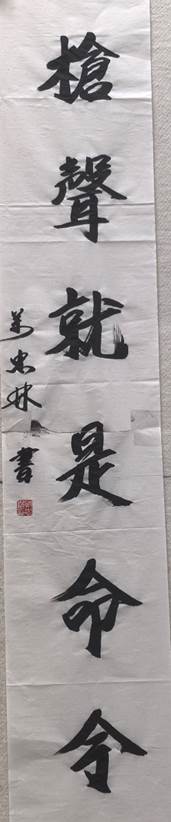 槍聲就是命令
萬忠林書